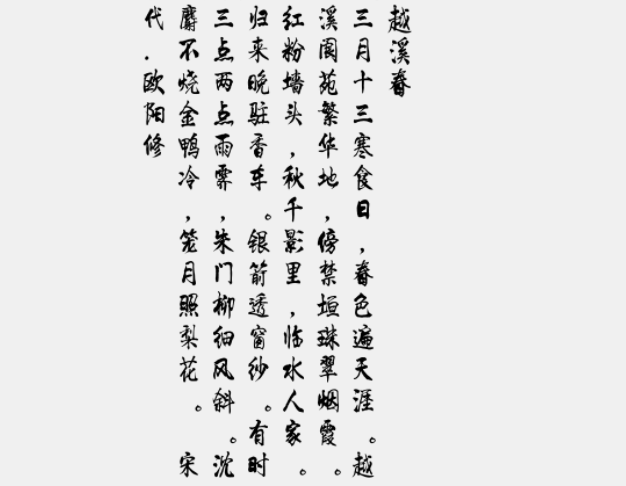 越溪春
三月十三寒食日，春色遍天涯。越
溪阆苑繁华地，傍禁垣珠翠烟霞。
红粉墙头，秋千影里，临水人家。
归来晚驻香车。银箭透窗纱。有时
三点两点雨霁，朱门柳细风斜。沈
麝不烧金鸭冷，笼月照梨花。 宋
代．欧阳修